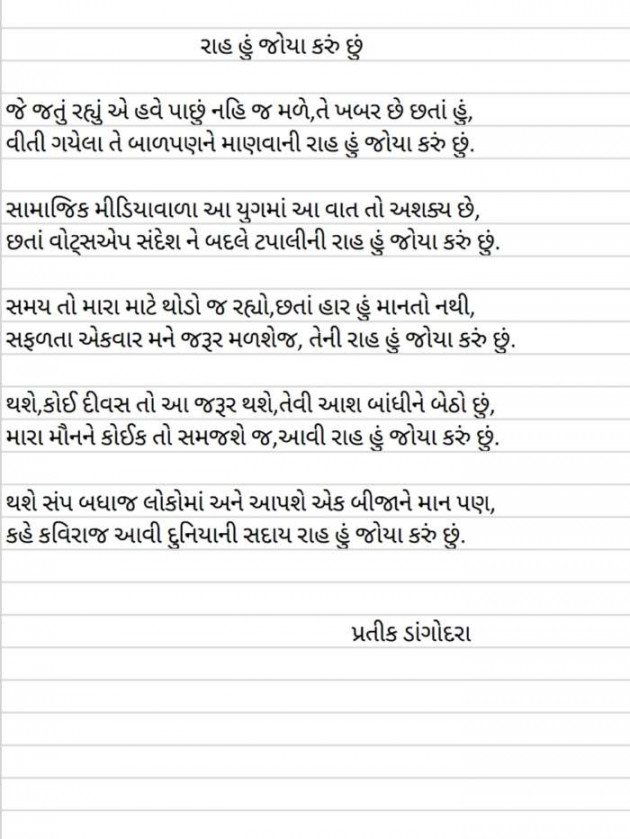 રાહ હું જોયા કરું છું
જે જતું રહ્યું એ હવે પાછું નહિ જ મળે,તે ખબર છે છતાં હું,
વીતી ગયેલા તે બાળપણને માણવાની રાહ હું જોયા કરું છું.
સામાજિક મીડિયાવાળા આ યુગમાં આ વાત તો અશક્ય છે,
છતાં વોટ્સએપ સંદેશ ને બદલે ટપાલીની રાહ હું જોયા કરું છું.
સમય તો મારા માટે થોડો જ રહ્યો,છતાં હાર હું માનતો નથી,
સફળતા એકવાર મને જરૂર મળશેજ, તેની રાહ હું જોયા કરું છું.
થશે,કોઈ દીવસ તો આ જરૂર થશે,તેવી આશ બાંધીને બેઠો છું,
મારા મૌનને કોઈક તો સમજશે જ,આવી રાહ હું જોયા કરું છું.
થશે સંપ બધાજ લોકોમાં અને આપશે એક બીજાને માન પણ,
કહે કવિરાજ આવી દુનિયાની સદાય રાહ હું જોયા કરું છું.
પ્રતીક ડાંગોદરા